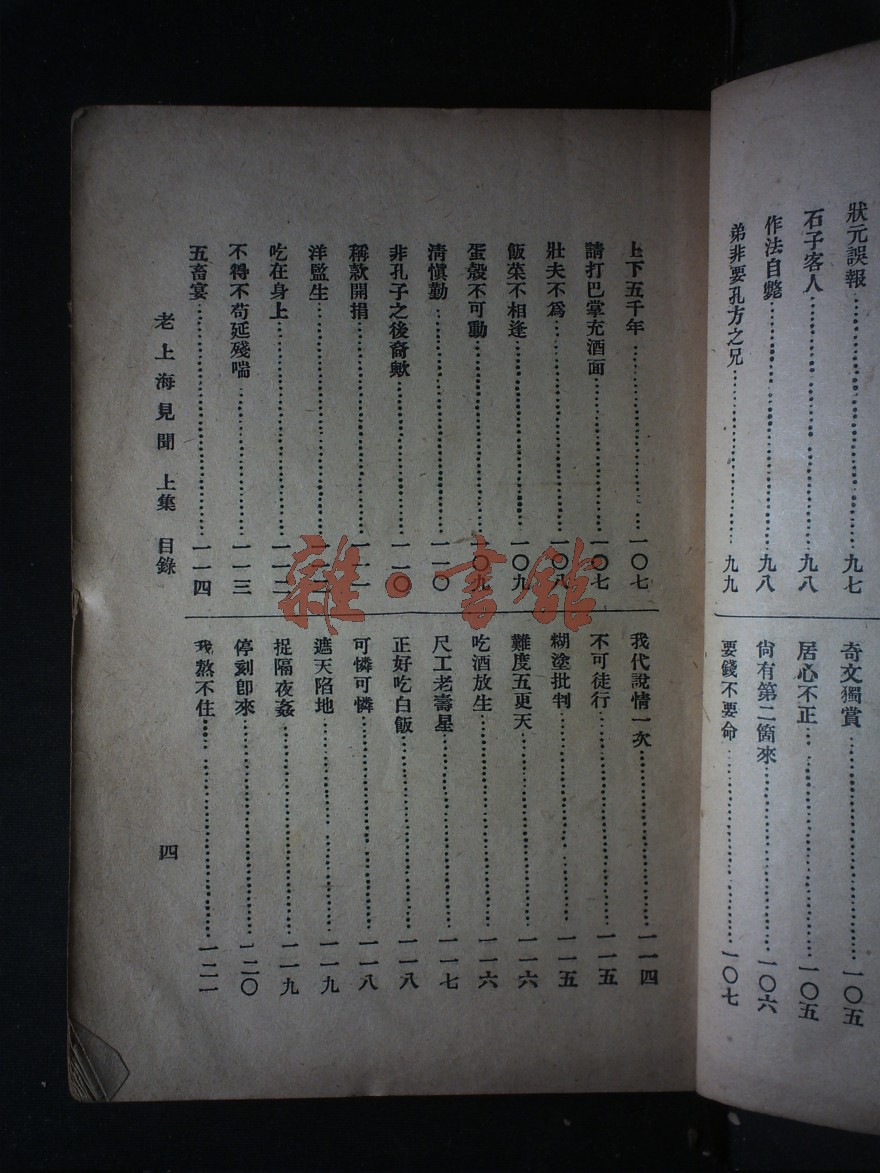 狀元誤報……九七
石子客人……九八
作法自斃……九八
弟非要孔方之兄……九九
奇文獨賞……一〇五
居心不正……一〇五
尙有第二箇來……一〇六
要錢不要命……一〇七
上下五千年……一〇七
請打巴掌充酒面……一〇七
壯夫不爲……一〇八
飯菜不相逢……一〇九
蛋殼不可動……一〇九
淸愼勤……一一〇
非孔子之後裔歟……一一〇
稱款開捐……一一一
洋監生……
吃在身上……一一二
不得不苟延殘喘……一一三
五畜宴……一一四
我代說情一次……一一四
不可徒行……一一五
糊塗批判……一一五
難度五更天……一一六
吃酒放生……一一六
尺工老壽星……一一七
正好吃白飯……一一八
可憐可憐……一一八
遮天陷地……一一九
捉隔夜姦……一一九
停刻卽來……一二〇
我熬不住……一二一
老上海見聞 上集 目錄
四
雜·書館